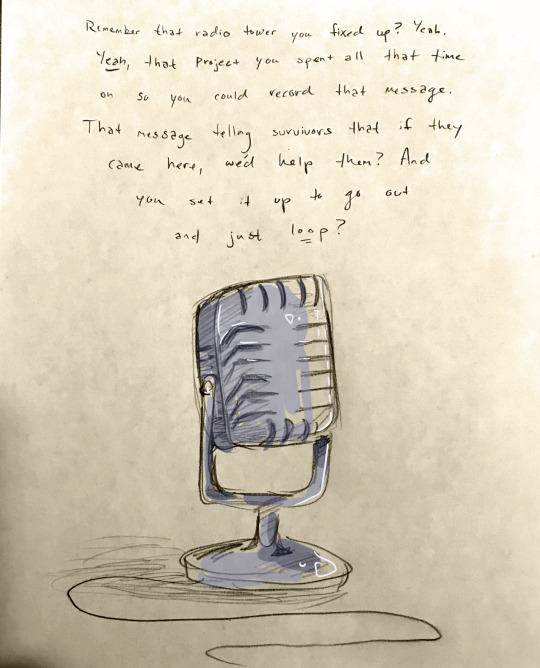 Remember that radio tower you fixed up? Yeah.
Yeah, that project you spent all that time
on so you could record that message.
That message telling survivors that if they
came here, we'd help them? And
you set it up to go out
and just loop?